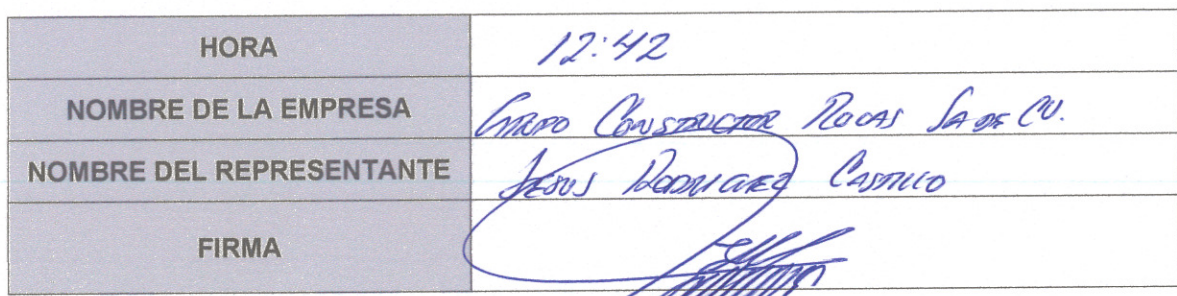 HORA 12:42
NOMBRE DE LA EMPRESA GRUPO CONSTRUCTOR ROCAS SA DE CV.
NOMBRE DEL REPRESENTANTE JESUS RODRIGUEZ CASTILLO
FIRMA